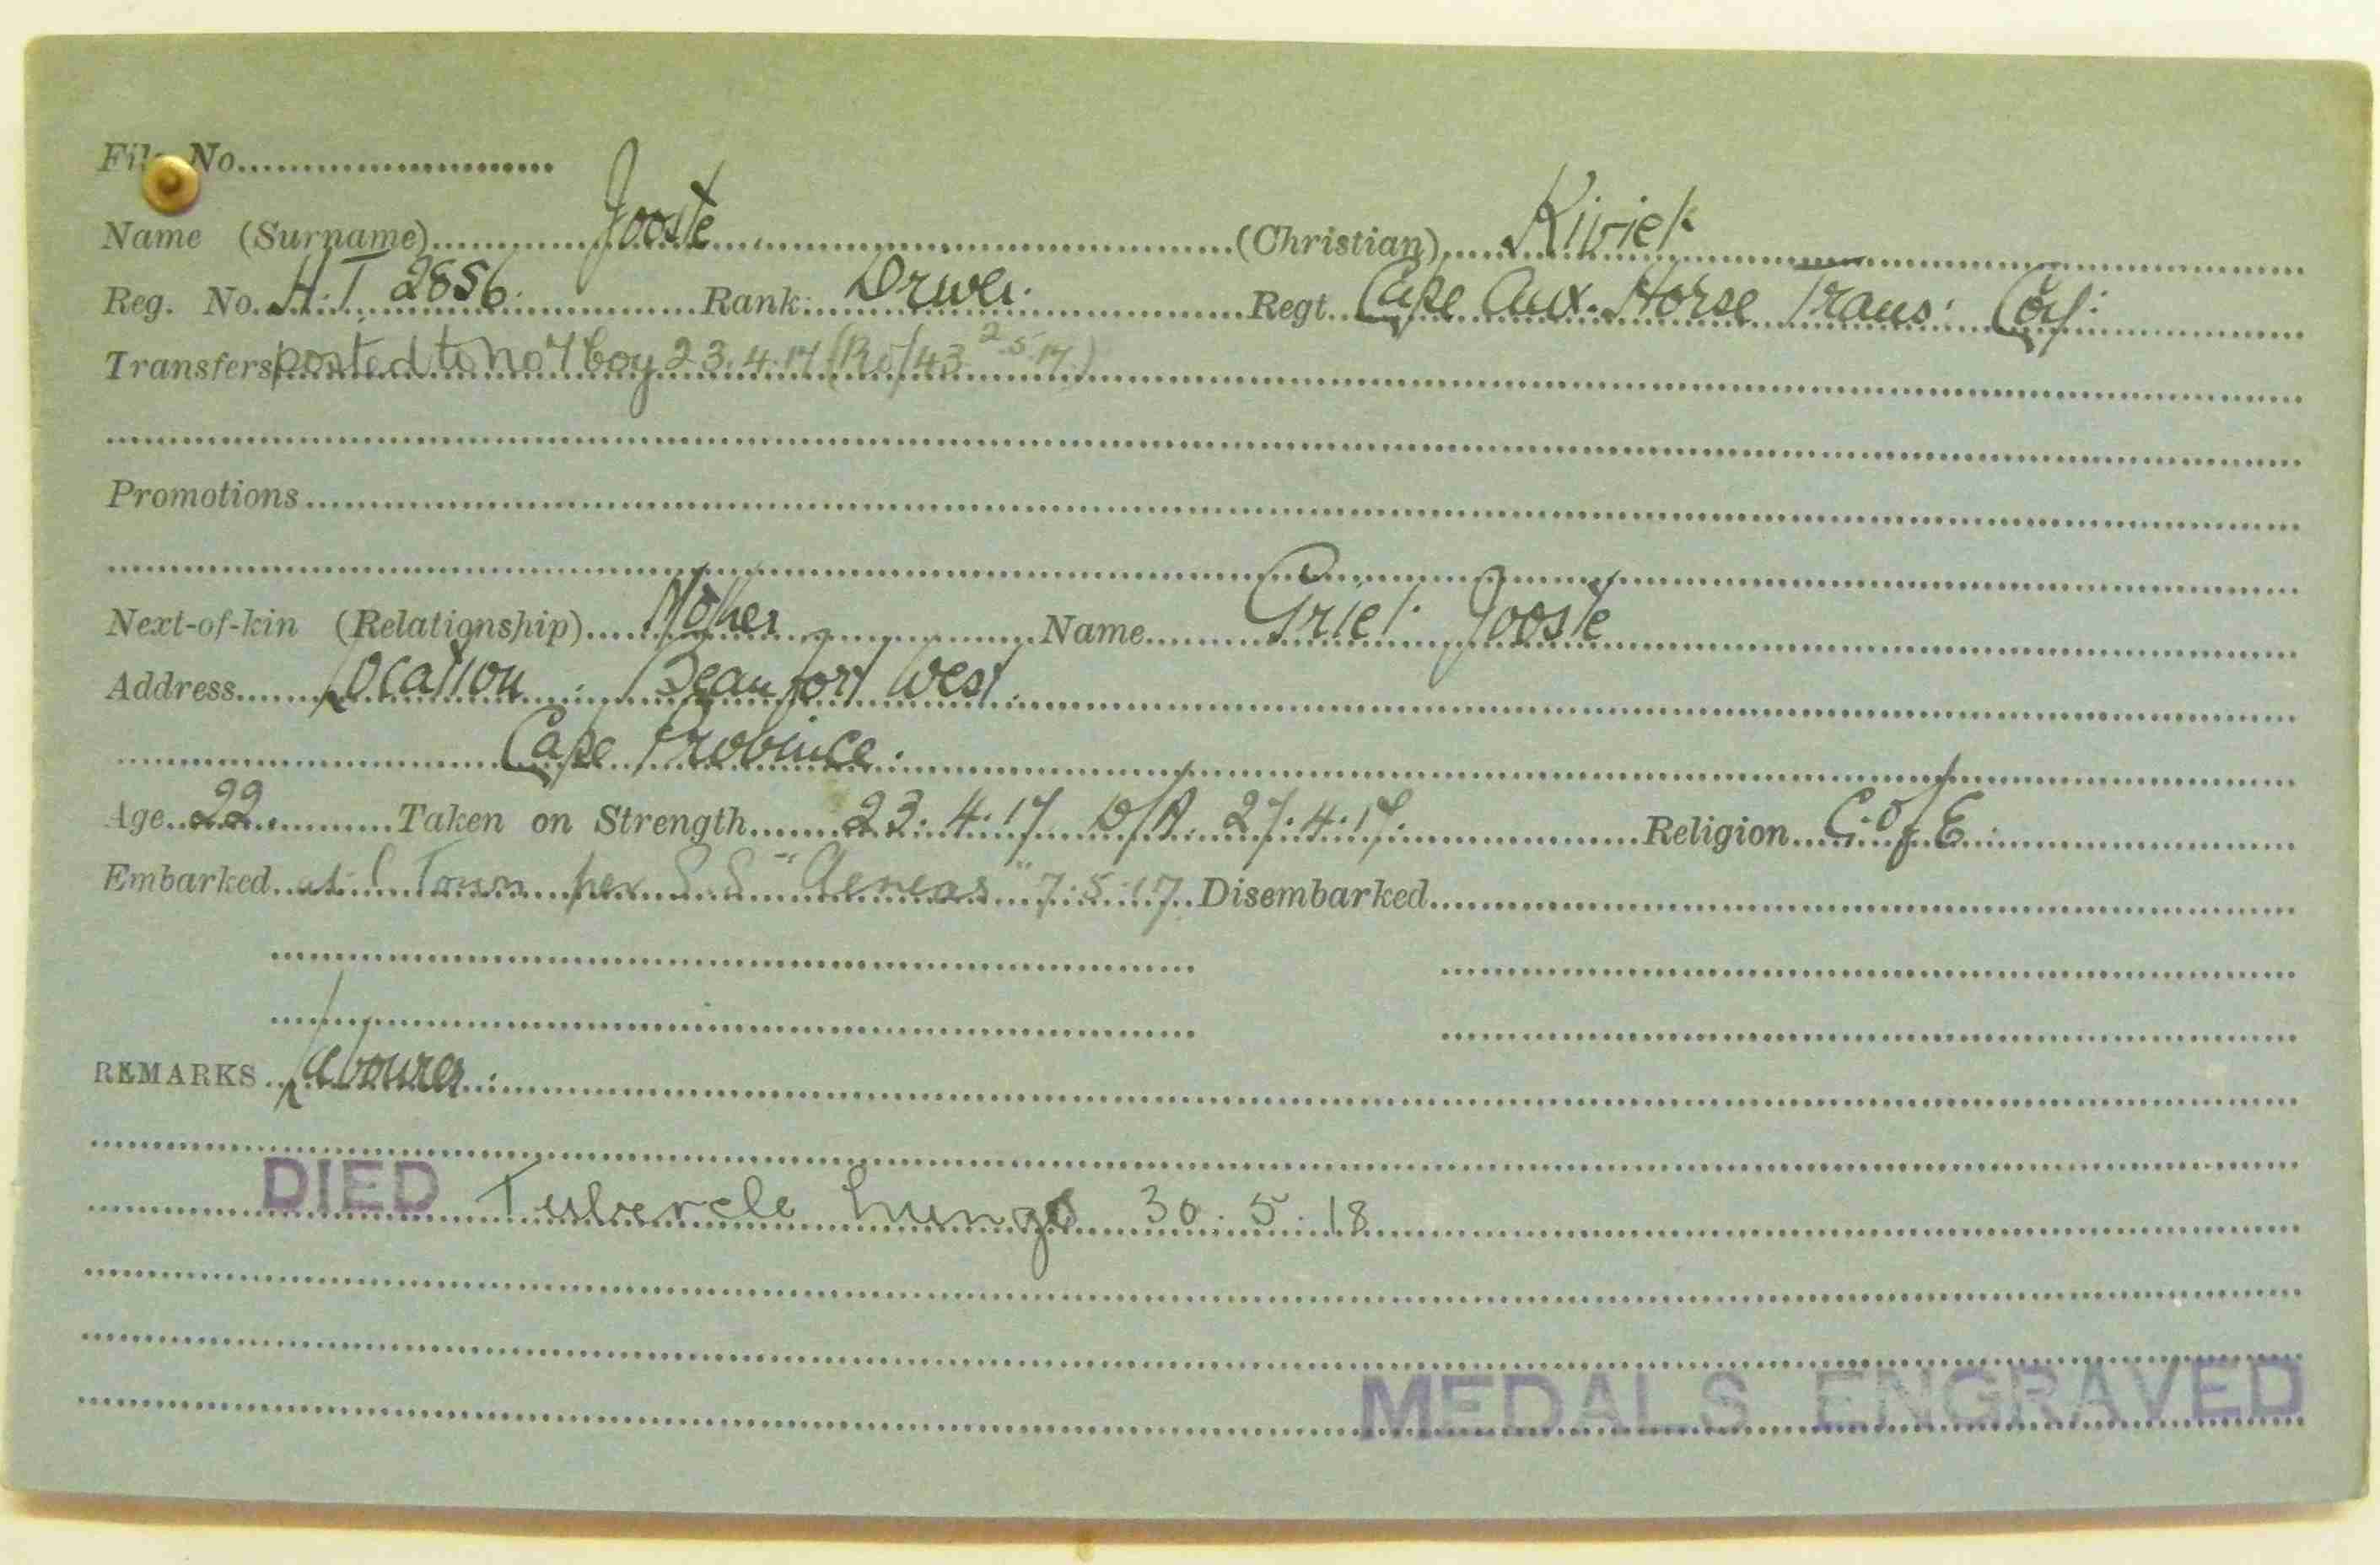 File No.
Name (Surname) Jooste (Christian) Kiviet
Reg. No. H.T 2856. Rank: Driver. Regt. Cape Aux. Horse Trans: Coy:
Transfers posted to No 7 Coy 23.4.17 (Ro/43 2.5.17)
Promotions
Next-of-kin (Relationship) Mother Name Griet Jooste
Address Location : Beaufort West.
Cape Province.
Age 22. Taken on Strength 23.4.17 D/A 27.4.17. Religion C. of E.
Embarked at C Town per S.S "Aeneas" 7.5.17. Disembarked
REMARKS Labourer.
DIED Tubercle Lungs 30.5.18
MEDALS ENGRAVED